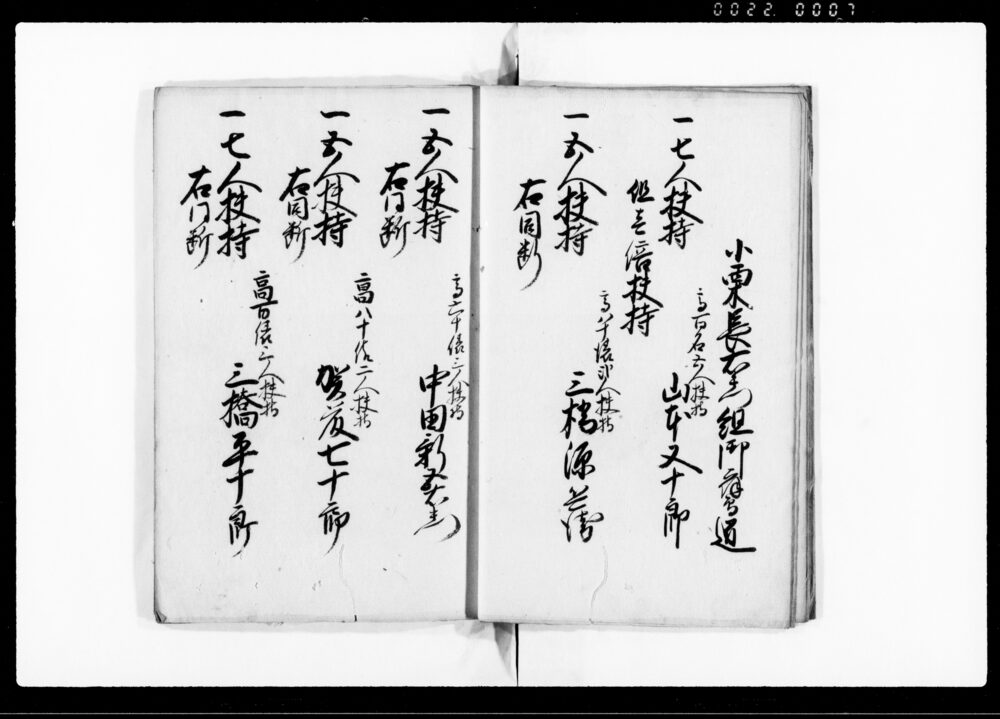 0022 0007
小栗長右衛門組御鷹匠
一七人扶持
但壱倍扶持
高百石五人扶持
山本又十郎
一五人扶持
右同断
高八十俵弐人扶持
三橋源兵衛
一五人扶持
右同断
高六十俵三人扶持
中田新五右衛門
一五人扶持
右同断
高八十俵二人扶持
七十郎
一七人扶持
右同断
高百俵三人扶持
三橋平十郎